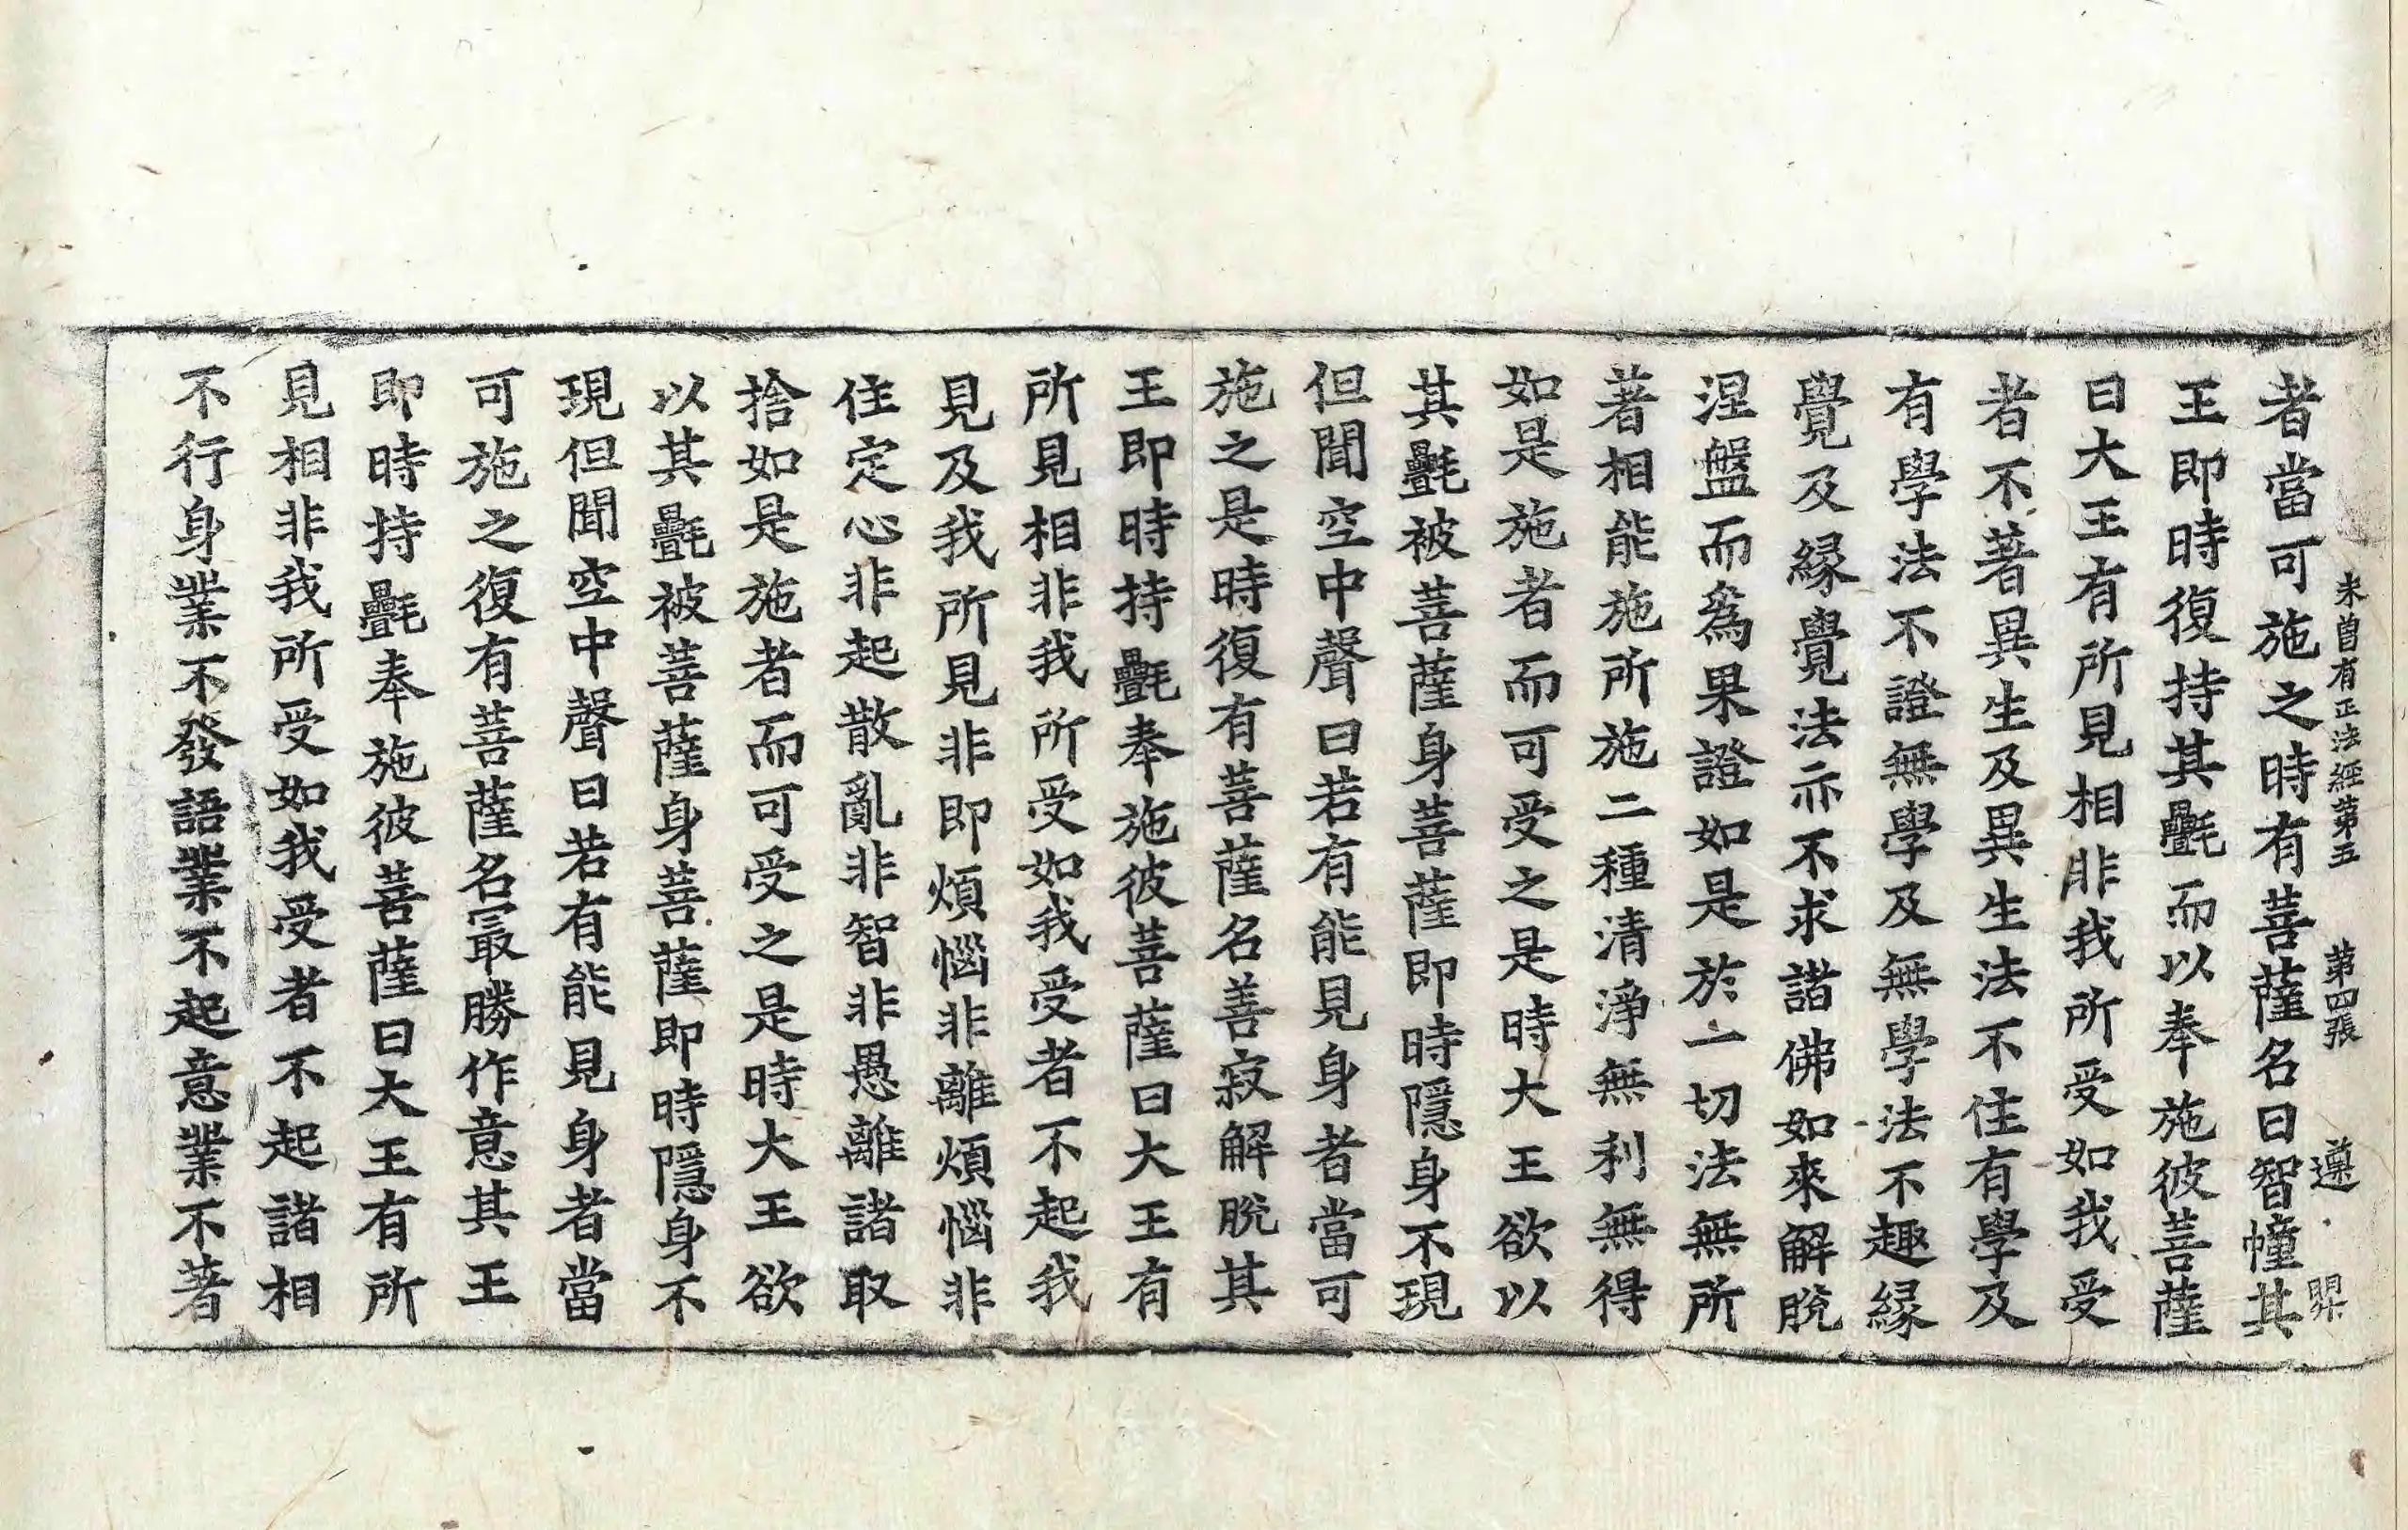 未曾有正法經第五 第四張 遵
者當可施之時有菩薩名曰智幢其
王即時復持其㲲而以奉施彼菩薩
曰大王有所見相非我所受如我受
者不著異生及異生法不住有學及
有學法不證無學及無學法不趣緣
覺及緣覺法亦不求諸佛如來解脫
涅盤而為果證如是於一切法無所
著相能施所施二種清淨無利無得
如是施者而可受之是時大王欲以
其㲲被菩薩身菩薩即時隱身不現
但聞空中聲曰若有能見身者當可
施之是時復有菩薩名善寂解脫其
王即時持㲲奉施彼菩薩曰大王有
所見相非我所受如我受者不起我
見及我所見非即煩惱非離煩惱非
住定心非起散亂非智非愚離諸取
捨如是施者而可受之是時大王欲
以其㲲被菩薩身菩薩即時隱身不
現但聞空中聲曰若有能見身者當
可施之復有菩薩名冣勝作意其王
即時持㲲奉施彼菩薩曰大王有所
見相非我所受如我受者不起諸相
不行身業不發語業不起意業不著